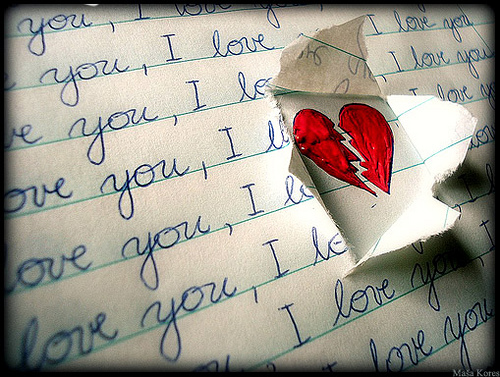 you, I love you, I
you, I love I love you,
ve you, I lo I love you,
ove you, I l love you
ove you, I l
love you, I lo
love you, I love you, I
love you
Maša Kores